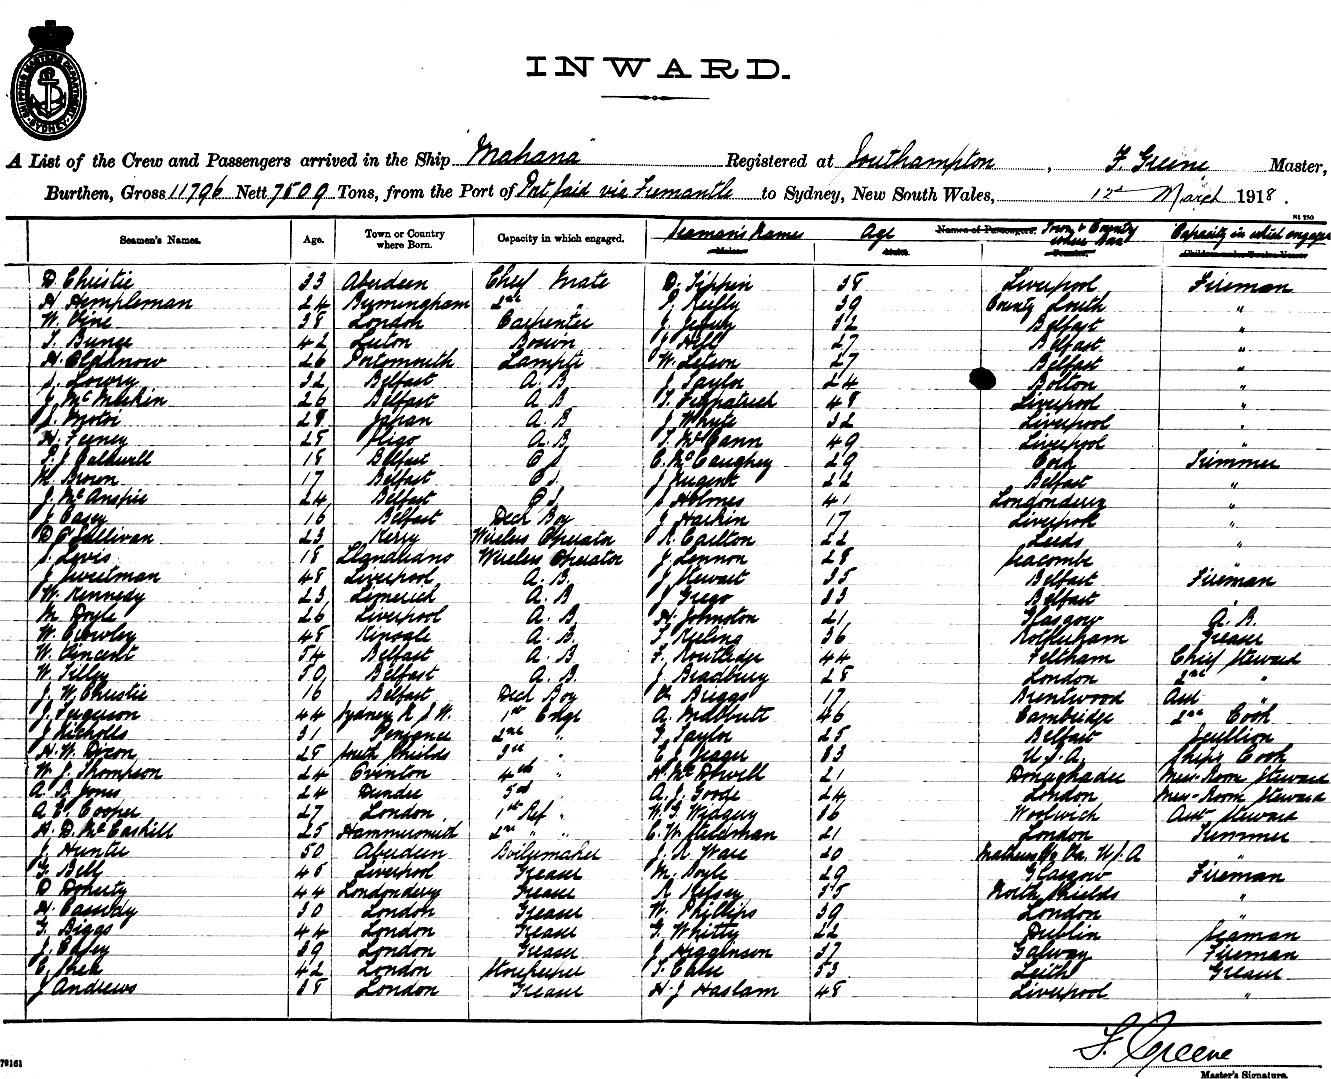 SHIPPING MASTERS DEPARTMENT SYDNEY
INWARD.
A List of the Crew and Passengers arrived in the Ship "Mahana" Registered at Southampton, F. Greene Master,
Burthen, Gross 11796 Nett 7509 Tons, from the Port of Port Said via Fremantle to Sydney, New South Wales, 12th March 1918.
St 250
Seamen's Names. Age. Town or Country where Born. Capacity in which engaged. Seaman's Names Age Names of Passengers. Town & Country where Born Capacity in which engaged
D Christie 33 Aberdeen Chief Mate D. Tippin 38 Liverpool Fireman
H Hempleman 24 Bymingham 2nd " P. Reilly 39 County Louth "
W. Vine 38 London Carpenter J. 32 Belfast "
T. Bunce 42 Luton Bosun J. Hill 27 Belfast "
H. Oldknow 26 Portsmouth Lamptr W. Letson 27 Belfast "
Lowry 32 Belfast A. B J. Taylor 24 Bolton "
J McMeekin 26 Belfast A. B T. Fitzpatrick 48 Liverpool "
J. 28 Japan A. B J. Whyte 32 Liverpool "
H. Feeney 28 Sligo A. B T. McCann 49 Liverpool "
P. J. Caldwell 18 Belfast O S C. McCaughey 29 Cork Trimmer
M. Brown 17 Belfast O S J Nugent 22 Belfast "
J. McAnspie 24 Belfast O S Holmes 41 Londonderry "
Casey 16 Belfast Deck Boy J Harkin 17 Liverpool "
D O'Sullivan 23 Kerry Wireless Operator R. Carlton 22 Leeds "
Lewis 18 Llandudno Wireless Operator J. Lennon 28 Seacombe "
J Sweetman 48 Liverpool A. B. J Stewart 35 Belfast Fireman
W. Kennedy 23 Limerick A. B J Grego 33 Belfast "
M Doyle 26 Liverpool A. B H. Johnston 21 Glasgow A. B.
W. Crowley 48 Kinsale A. B. T Keeling 36 Rotherham Greaser
W. Vincent 54 Belfast A. B F. Routledge 44 Feltham Chief Steward
W Tilley 30 Belfast A. B. J Bradbury 28 London 2nd "
J. W. Christie 16 Belfast Deck Boy Briggs 17 Brentwood Asst "
J. Ferguson 44 Sydney N. S. W. 1st Engr A. Mabbutt 46 Cambridge 2nd Cook
J Nicholls 31 Penzance 2nd " Taylor 25 Belfast Scullion
H. W. Dixon 28 South Shields 3rd " C. J. Yeager 33 U. S. A. Ships Cook
W. J. Thompson 24 Everton 4th " H. McDowell 21 Donaghadee Mess-Room Steward
A. D. Jones 24 Dundee 5th " A. J. Goode 24 London Mess-Room Steward
A E Cooper 27 London 1st Ref " W. G. Widgery 36 Woolwich Asst Steward
H. D. McCaskill 25 Hammersmith 2nd " " C. W. 21 London Trimmer
J Hunter 50 Aberdeen Boilermaker J. R Ware 20 Mathews Co Va. U. S. A "
G. Bell 48 Liverpool Greaser M. Doyle 29 Glasgow Fireman
D Doherty 44 Londonderry Greaser R. Kelsey 35 North Shields "
H. Cassidy 30 London Greaser W. Phillips 39 London "
G. Biggs 44 London Greaser G. Whitty 22 Dublin Seaman
J. Casey 39 London Greaser J Higginson 37 Galway Fireman
C. Shea 42 London Storekeeper T. Cable 53 Leith Greaser
J Andrews 38 London Greaser H. J Haslam 48 Liverpool "
F. Greene
79161
Master's Signature.